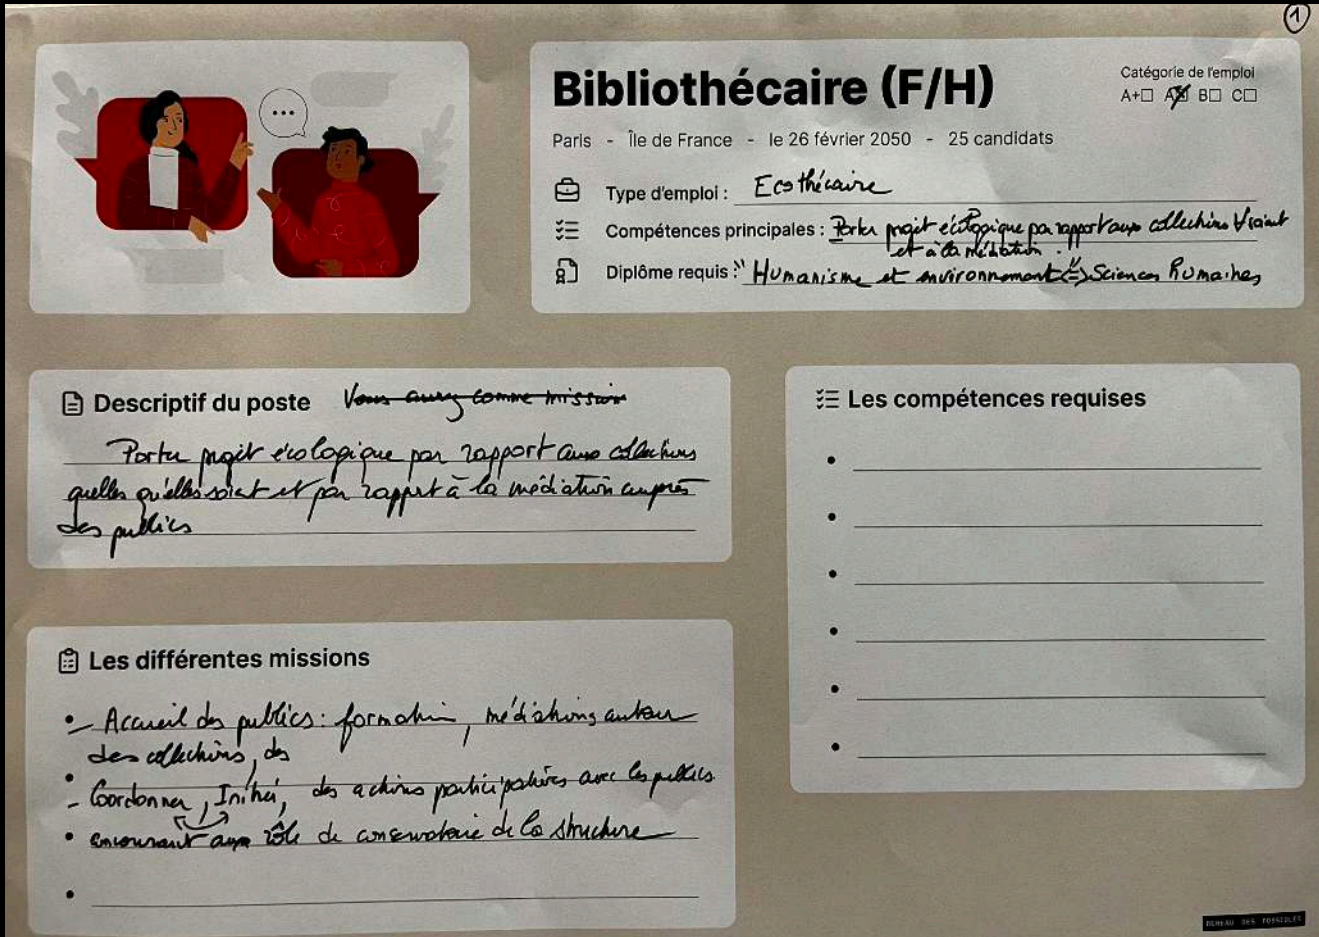 1
...
Bibliothécaire (F/H)
Catégorie de l'emploi
A+☐ A☒ B☐ C☐
Paris - Île de France - le 26 février 2050 - 25 candidats
Type d'emploi : Ecothécaire
Compétences principales : Porter projet écologique par rapport aux collections
et à la médiation.
Diplôme requis : "Humanisme et environnement" Sciences Humaines
Descriptif du poste Vous aurez comme mission
Porter projet écologique par rapport aux collections
quelles qu'elles soient et par rapport à la médiation auprès
des publics
Les compétences requises
Les différentes missions
- Accueil des publics : formation, médiations autour
des collections, des
- Coordonner, Initier, des actions participatives avec les publics
aux rôle de conservatoire de la structure
BUREAU DES POSSIBLES